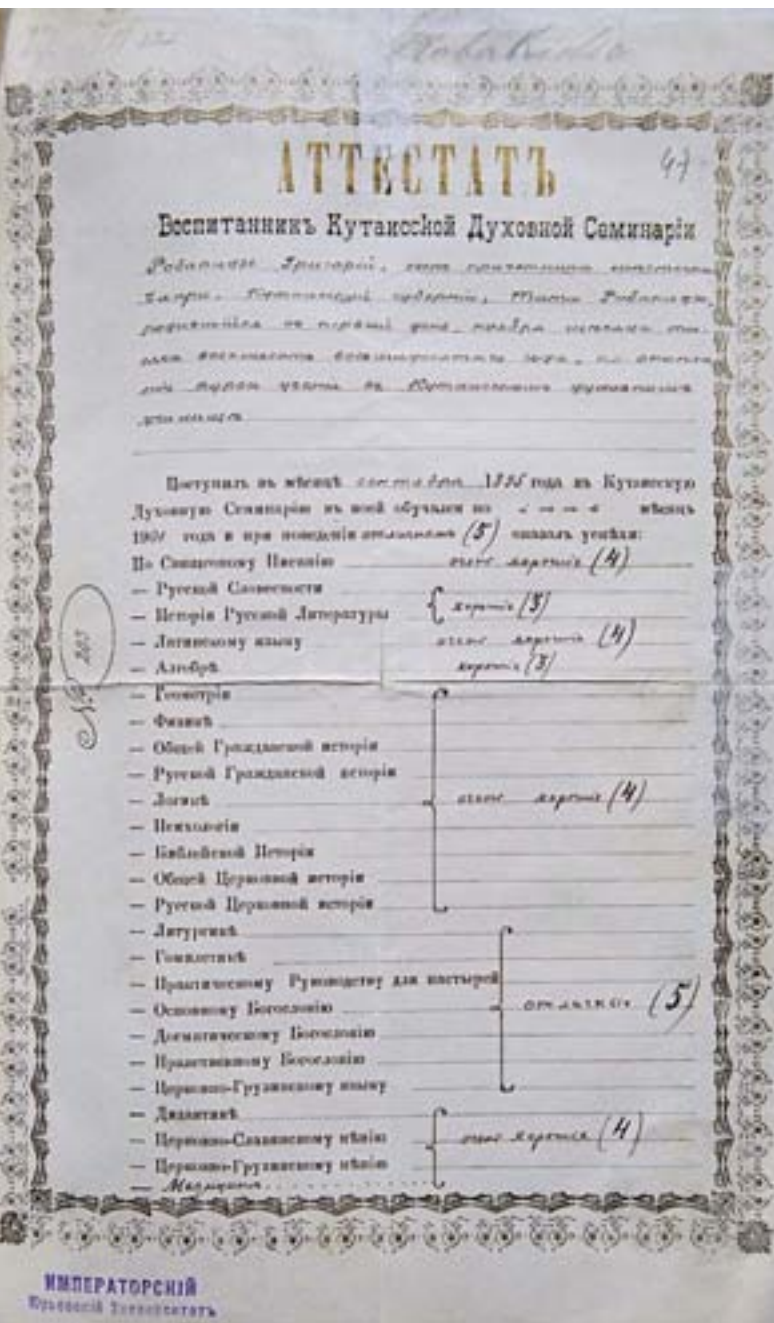 47
АТТЕСТАТЪ
Воспитанникъ Кутаисской Духовной Семинаріи
Робакидзе Григорій, сынъ причетника
Кутаисской губерніи,
родившійся въ первый день ноября
курса ученія въ Кутаисскомъ духовномъ
училищѣ
Поступилъ въ мѣсяцѣ сентябрѣ 1895 года въ Кутаисскую
Духовную Семинарію въ коей обучался по мѣсяцъ
1901 года и при поведеніи отличномъ (5) оказалъ успѣхи:
По Священному Писанію очень хорошіе (4)
— Русской Словесности
— Исторіи Русской Литературы хорошіе (3)
— Латинскому языку очень хорошіе (4)
— Алгебрѣ хорошіе (3)
№ 203
— Геометріи
— Физикѣ
— Общей Гражданской исторіи
— Русской Гражданской исторіи
— Логикѣ очень хорошіе (4)
— Психологіи
— Библейской Исторіи
— Общей Церковной исторіи
— Русской Церковной исторіи
— Литургикѣ
— Гомилетикѣ
— Практическому Руководству для пастырей
— Основному Богословію отличные (5)
— Догматическому Богословію
— Нравственному Богословію
— Церковно-Грузинскому языку
— Дидактикѣ
— Церковно-Славянскому пѣнію очень хорошіе (4)
— Церковно-Грузинскому пѣнію
— Медицина
ИМПЕРАТОРСКІЙ
Юрьевскій Университетъ